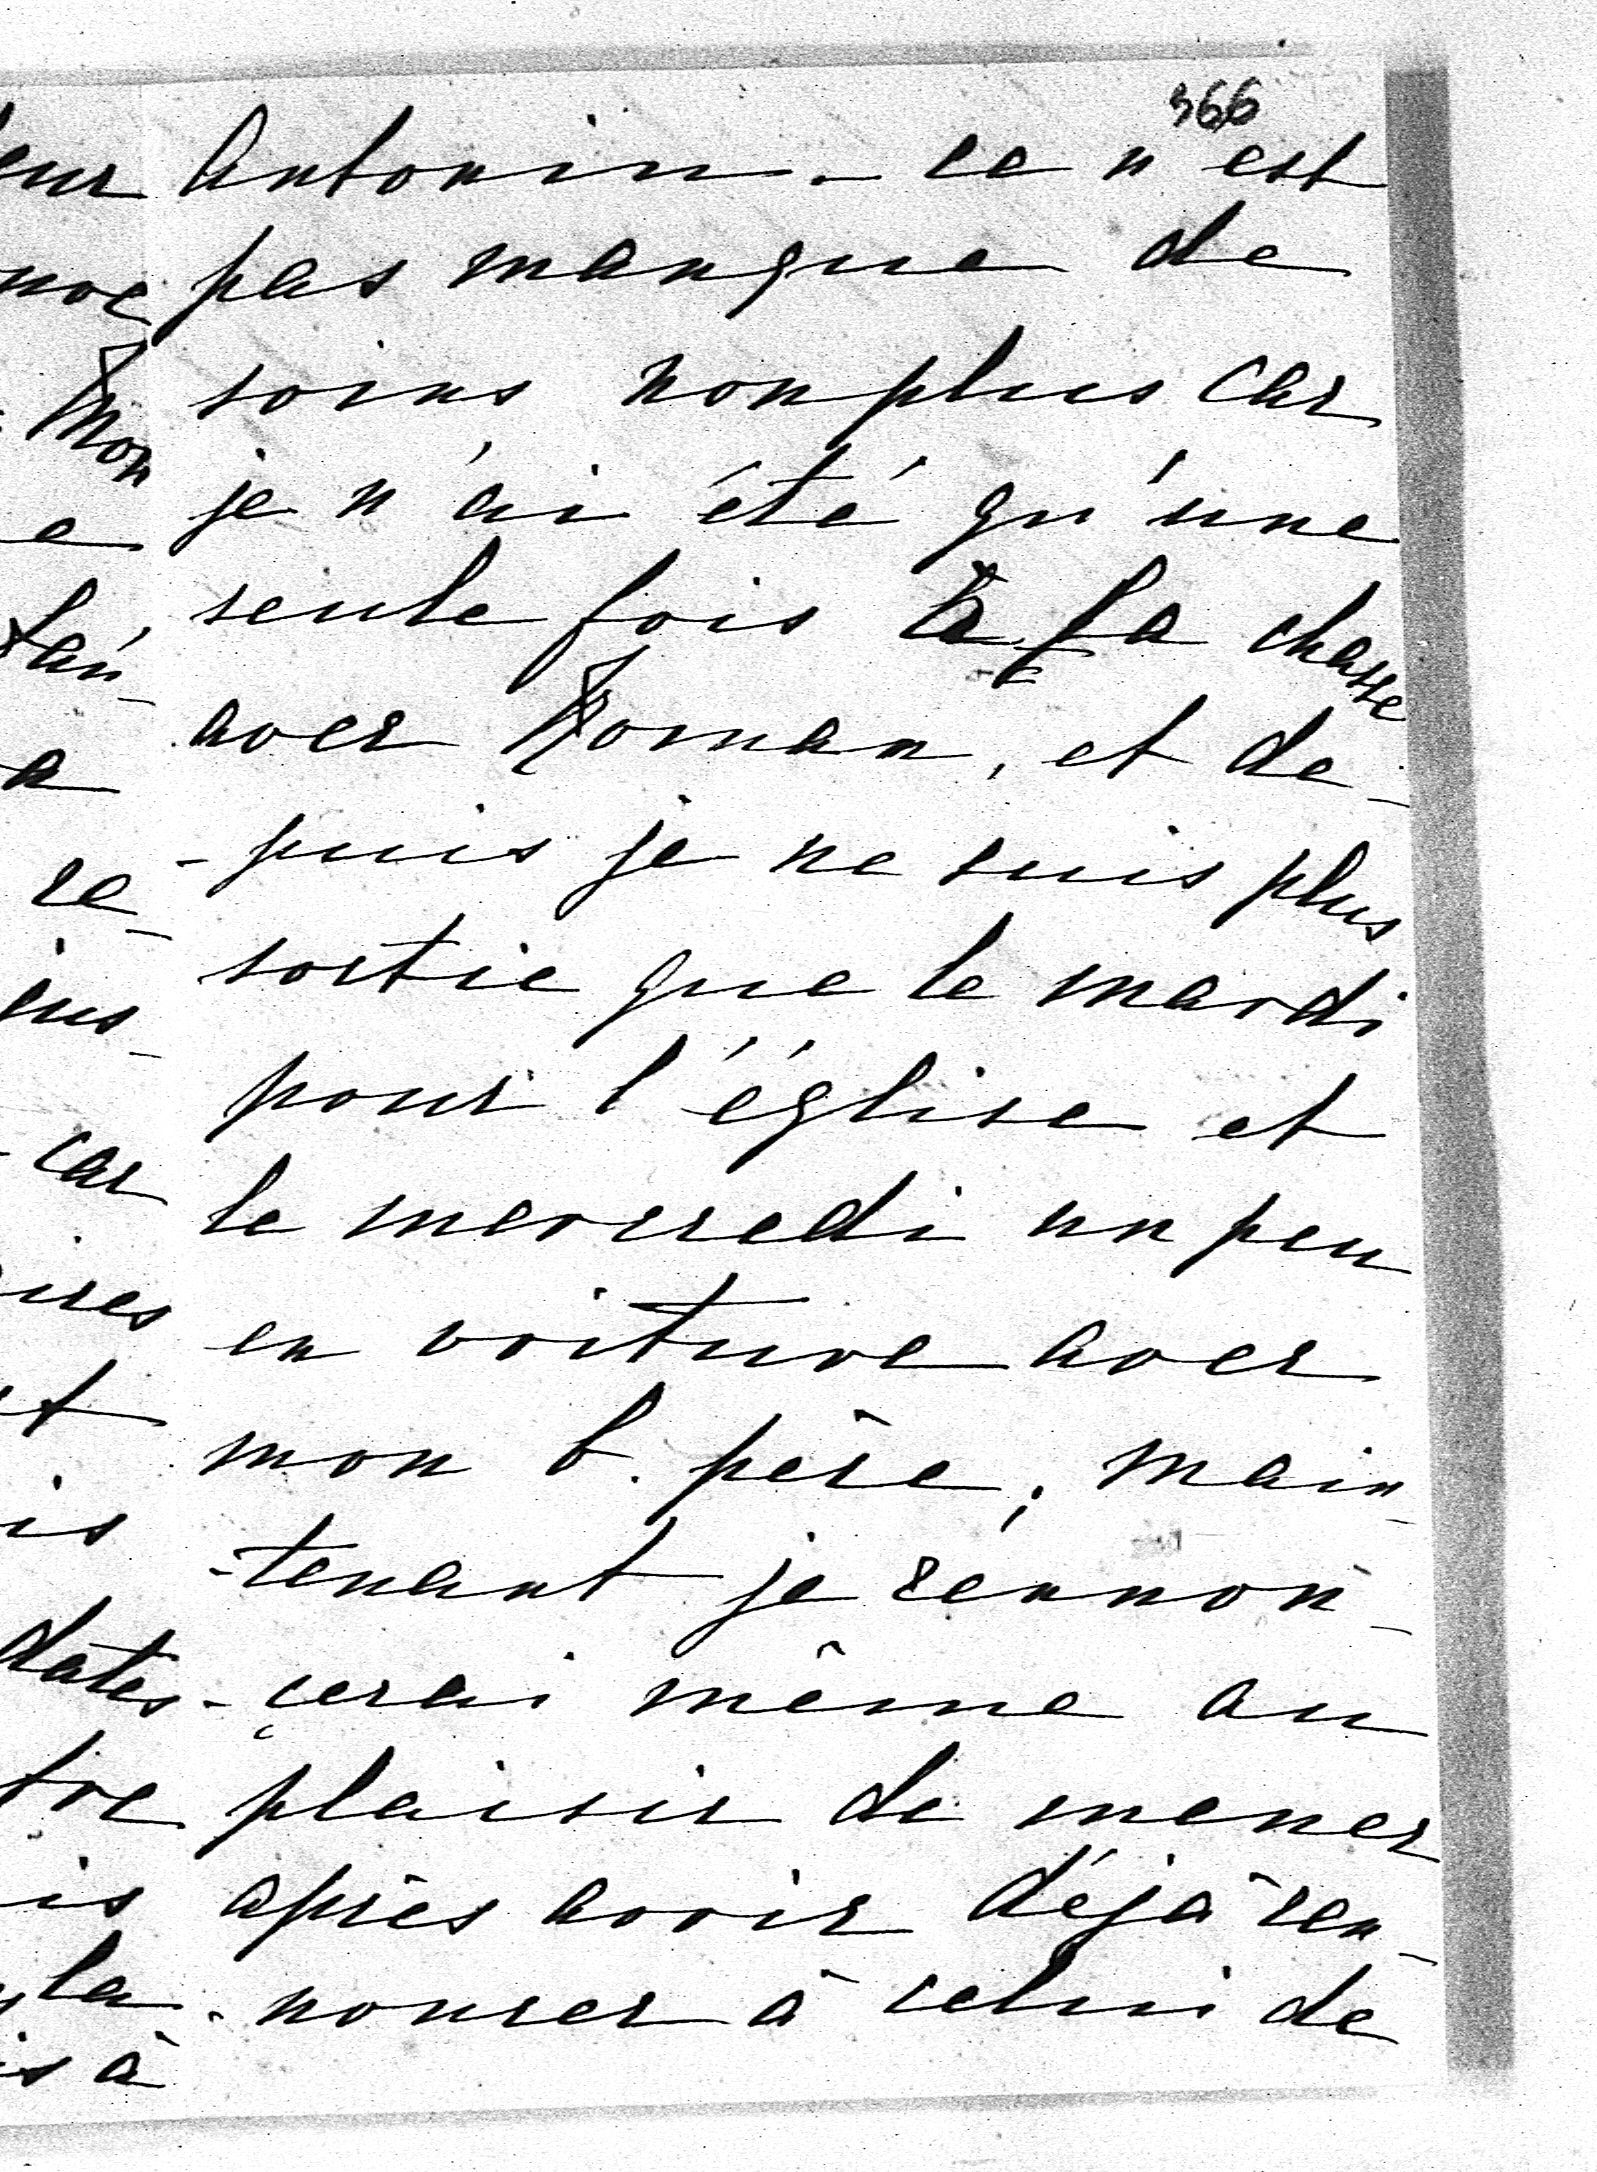 366
Antonin. ce n'est
pas manque de
soins non plus car
je n'ai été qu'une
seule fois à la chasse
avec Roman, et de-
-puis je ne suis plus
sortie que le mardi
pour l'église et
le mercredi un peu
en voiture avec
mon b. père; main-
-tenant je rennon-
-çerai même au
plaisir de mener
après avoir déjà ren-
-noncer à celui de